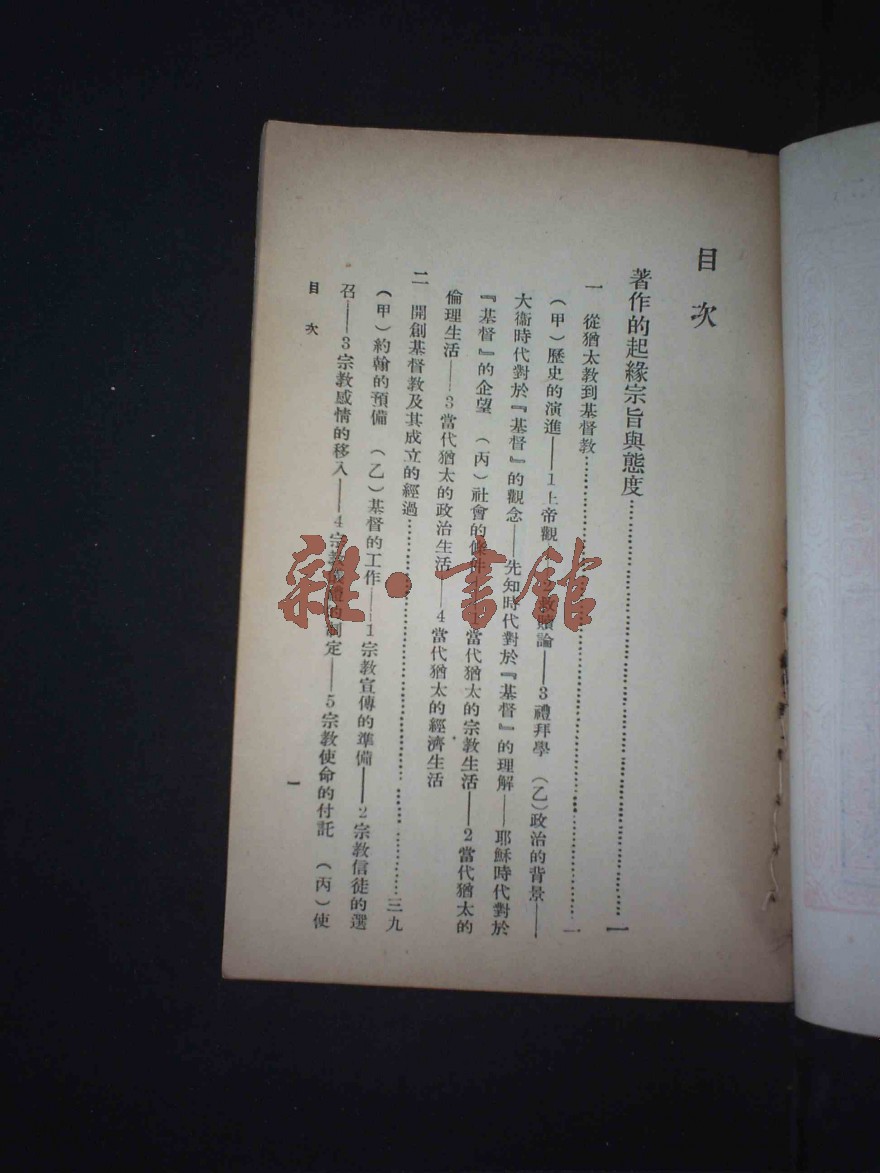 目次
著作的起緣宗旨與態度……………………一
一 從猶太教到基督教……………………一
（甲）歷史的演進——1上帝觀——2救贖論——3禮拜學 （乙）政治的背景——
大衞時代對於『基督』的觀念——先知時代對於『基督』的理解——耶穌時代對於
『基督』的企望 （丙）社會的條件——1當代猶太的宗教生活——2當代猶太的
倫理生活——3當代猶太的政治生活——4當代猶太的經濟生活
二 開創基督教及其成立的經過……………………三九
（甲）約翰的預備 （乙）基督的工作——1宗教宣傳的準備——2宗教信徒的選
召——3宗教感情的移入——4宗教 的制定——5宗教使命的付託 （丙）使
目次
一
雜·書館